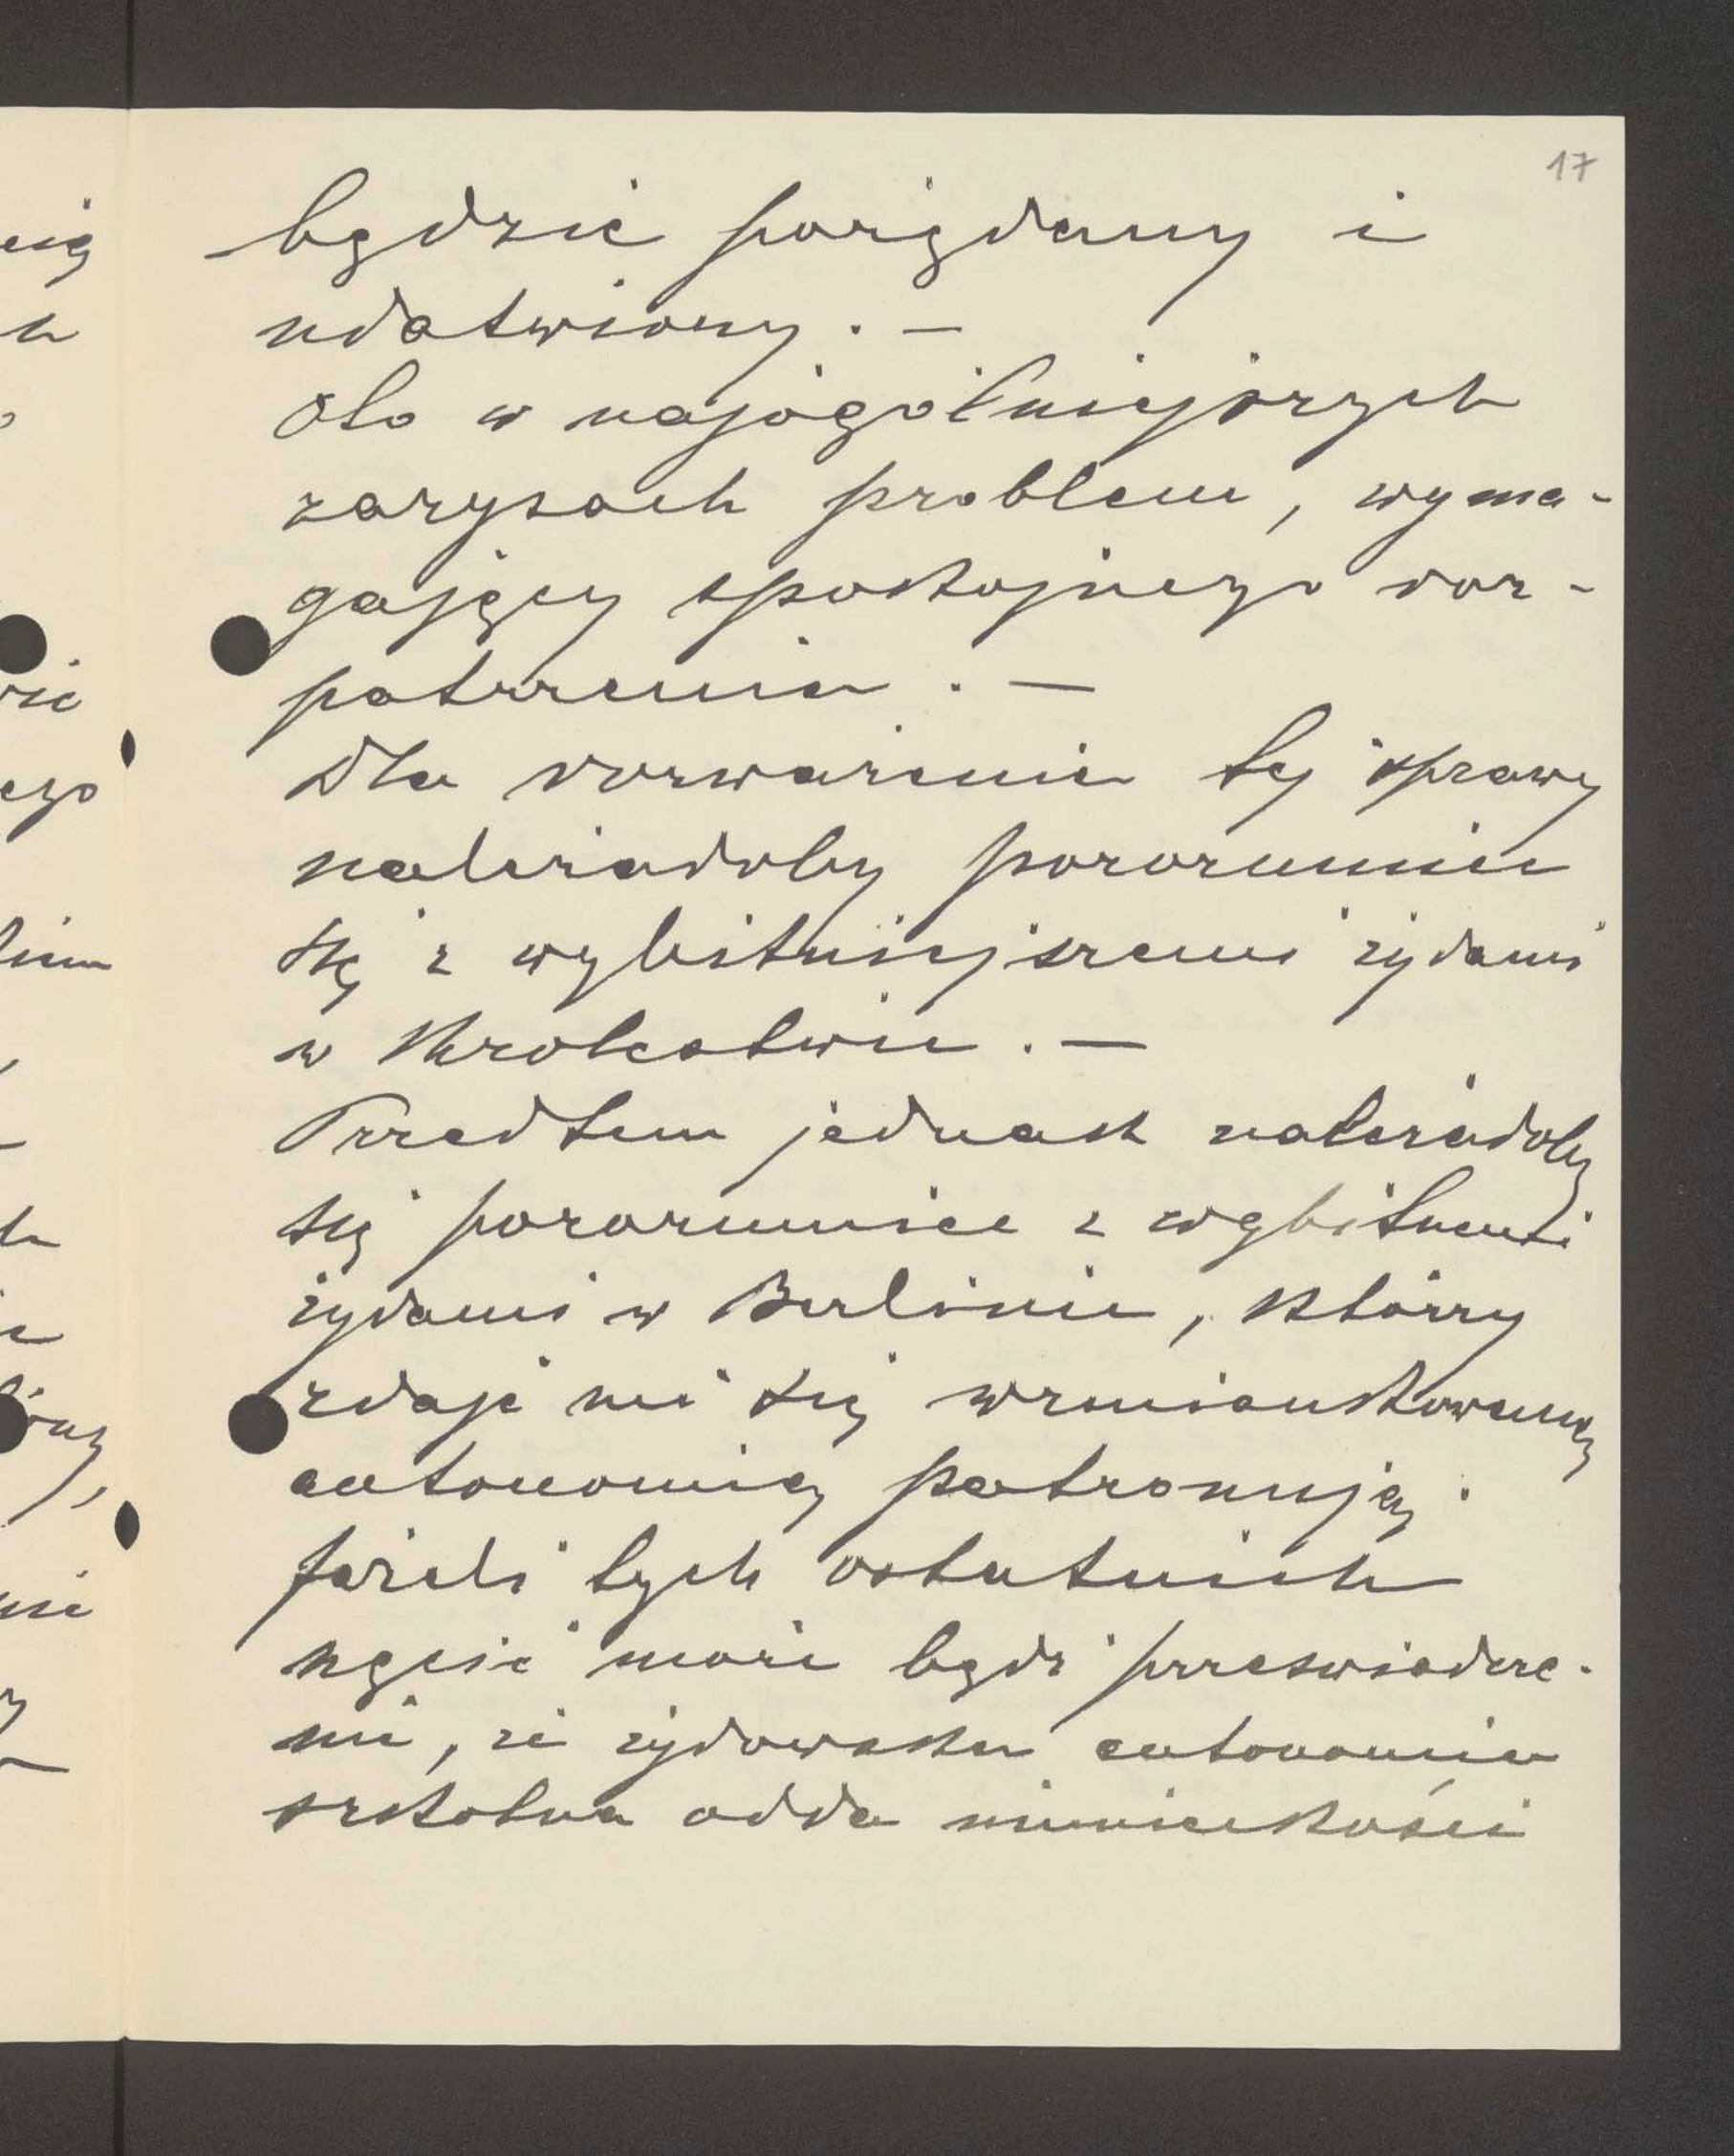 17
będzie pożądany i
ułatwiony. —
Oto w najogólniejszych
zarysach problem, wyma-
gający spokojnego roz-
patrzenia. —
Dla rozważenia tej sprawy
należałoby porozumieć
się z wybitniejszemi żydami
w Królestwie. —
Przedtem jednak należałoby
się porozumieć z wybitnemi
żydami w Berlinie, którzy
zdaje mi się wzmiankowaną
autonomię patronują.
Jeżeli tych ostatnich
chęcią może będzie przeświadcze-
nie, że żydowska autonomia
szkolna odda niemieckości